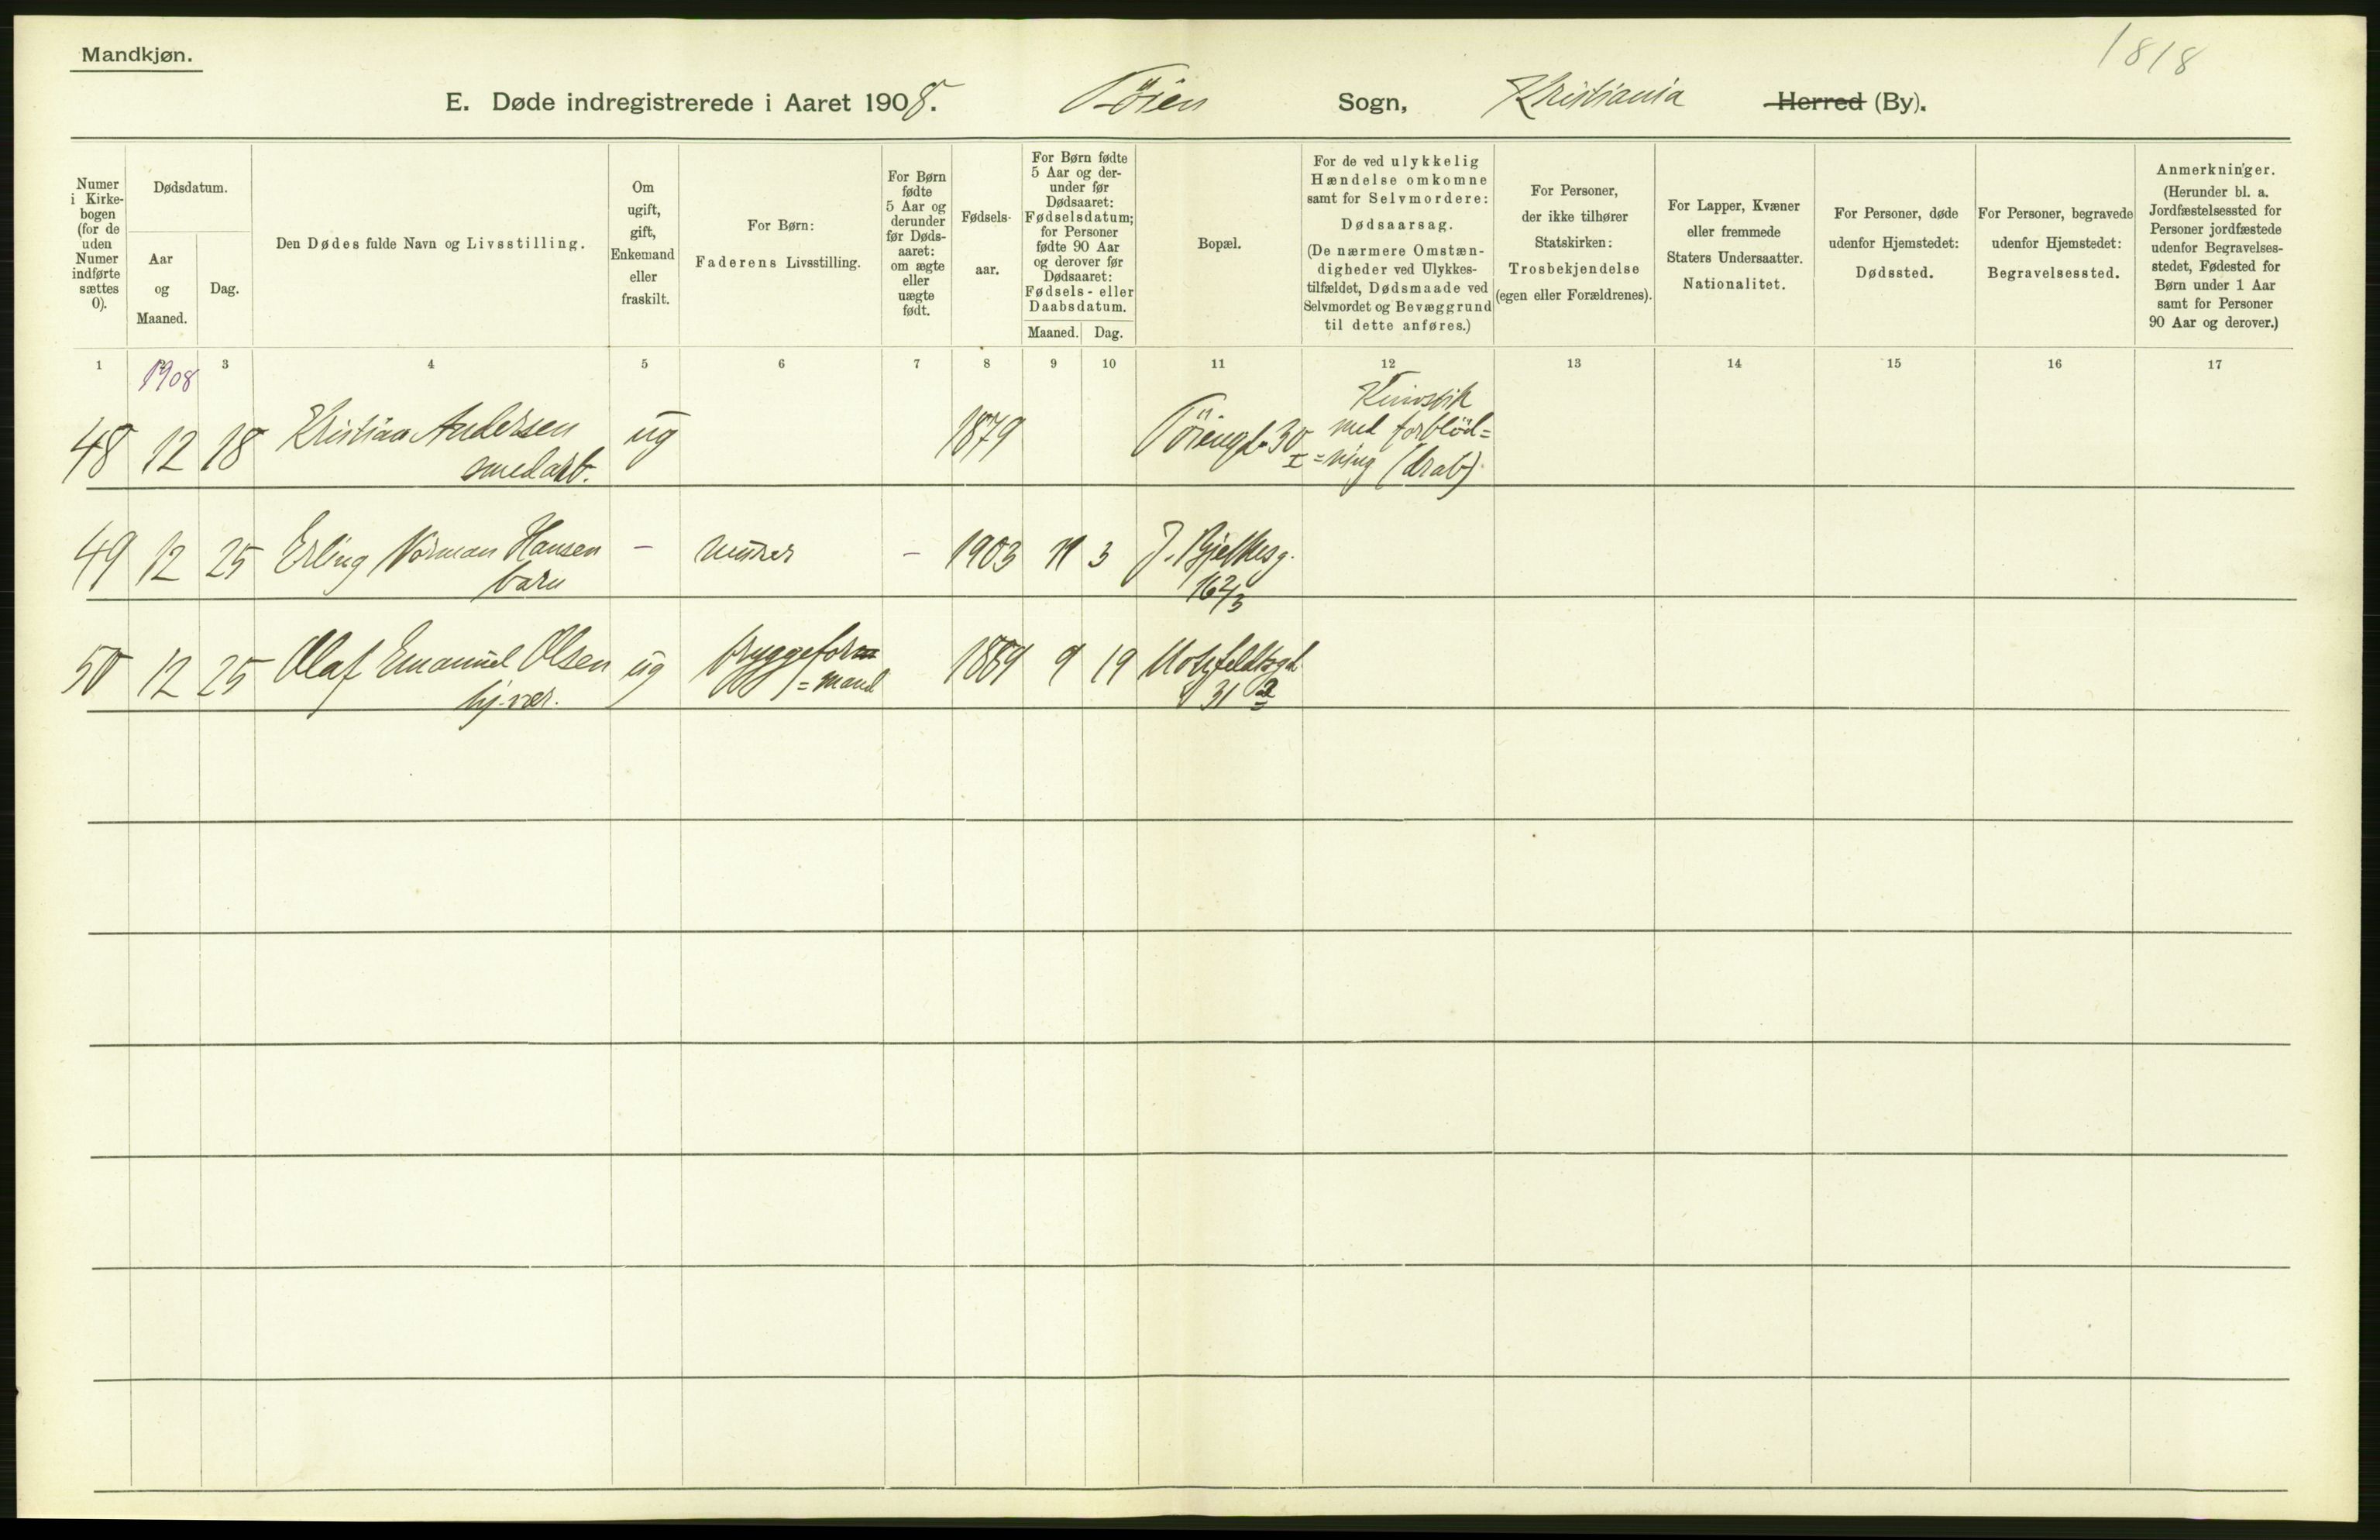 1818
Mandkjøn.
E. Døde indregistrerede i Aaret 1908. Töien Sogn, Kristiania Herred (By).
Numer
i Kirke-
bogen
(for de
uden
Numer
indførte
sættes
0).
Dødsdatum.
Aar
og
Maaned.
Dag.
Den Dødes fulde Navn og Livsstilling.
Om
ugift,
gift,
Enkemand
eller
fraskilt.
For Børn:
Faderens Livsstilling.
For Børn
fødte
5 Aar og
derunder
før Døds-
aaret:
om ægte
eller
uægte
født.
Fødsels-
aar.
For Børn fødte
5 Aar og der-
under før
Dødsaaret:
Fødselsdatum;
for Personer
fødte 90 Aar
og derover før
Dødsaaret:
Fødsels- eller
Daabsdatum.
Maaned. Dag.
Bopæl.
For de ved ulykkelig
Hændelse omkomne
samt for Selvmordere:
Dødsaarsag.
(De nærmere Omstæn-
digheder ved Ulykkes-
tilfældet, Dødsmaade ved
Selvmordet og Bevæggrund
til dette anføres.)
For Personer,
der ikke tilhører
Statskirken:
Trosbekjendelse
(egen eller Forældrenes).
For Lapper, Kvæner
eller fremmede
Staters Undersaatter.
Nationalitet.
For Personer, døde
udenfor Hjemstedet:
Dødssted.
For Personer, begravede
udenfor Hjemstedet:
Begravelsessted.
Anmerkninger.
(Herunder bl. a.
Jordfæstelsessted for
Personer jordfæstede
udenfor Begravelses-
stedet, Fødested for
Børn under 1 Aar
samt for Personer
90 Aar og derover.)
1 3 4 5 6 7 8 9 10 11 12 13 14 15 16 17
1908
48 12 18 Kristian Andersen ug 1879 Töiengd. 30 Knivstik
smedarb. I med forblöd=
=ning (drab)
49 12 25 Erling Norman Hansen - murer - 1903 11 3 J. Bjelkesg.
barn 16 2/3
50 12 25 Olaf Emanuel Olsen ug bryggeform 1889 9 19 Motzfeldtsgd.
hj. vær. =mand 31 2